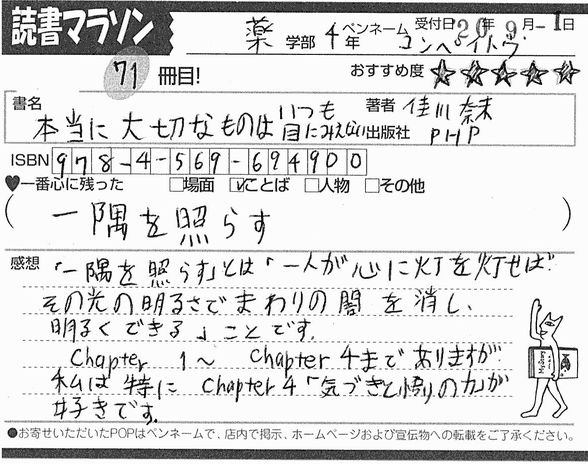 読書マラソン
薬 学部 4年 ペンネーム コンペイトウ 受付日 20年 9月-1日
71 冊目! おすすめ度 ☆☆☆☆☆
書名 本当に大切なものはいつも目にみえない 著者 佳川 奈未
出版社 PHP
ISBN 978-4-569-694900
♥一番心に残った □場面 ☑ことば □人物 □その他
(一隅を照らす)
感想 「一隅を照らす」とは「一人が心に灯を灯せば
その光の明るさでまわりの闇を消し、
明るくできる」ことです。
Chapter 1〜 Chapter 4までありますが
私は特に Chapter 4「気づきと悟りの力」が
好きです。
●お寄せいただいたPOPはペンネームで、店内で掲示、ホームページおよび宣伝物への転載をご了承ください。